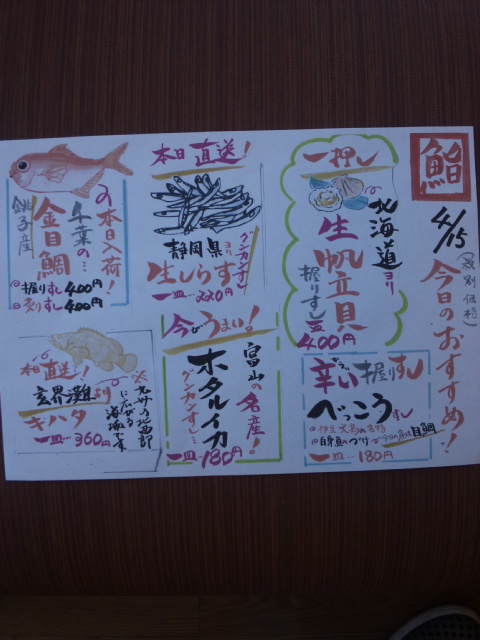 鮨
4/15
(税別価格)
今日のおすすめ!
一押し
北海道ヨリ
生帆立貝
握りずし
一皿 400円
辛い握りずし
べっこうずし
◎伊豆大島の名物
◎白身のづけ
目鯛
一皿…180円
本日直送!
静岡県ヨリ
生しらす
グンカンずし
一皿…220円
今がうまい!
富山の名産!
ホタルイカ
グンカンずし…
一皿…180円
本日入荷!
千葉の…
金目鯛
銚子産
◎握りずし 400円
◎炙りずし 400円
本日直送!
玄界灘より
キハタ
一皿…360円
※九州の北西部
に広がる
海域デス